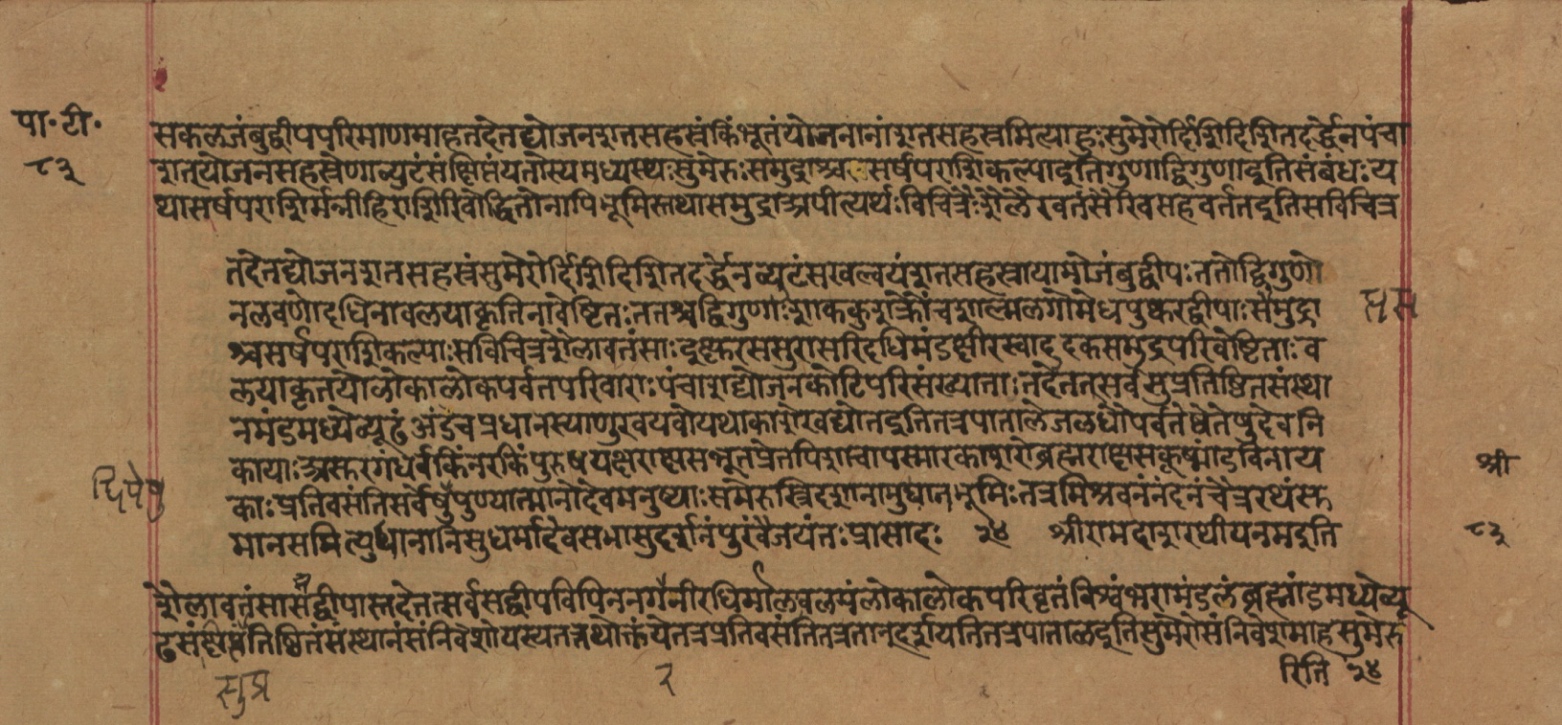 पा॰ टी॰
८३
सकलजंबुद्वीपपरिमाणमाहतदेतद्योजनशतसहस्रंकिंभूतंयोजनानांशतसहस्रमित्याहुःसुमेरोर्दिशिदिशितदर्द्धेनपंचा
शतयोजनसहस्रेणाव्युटंसंक्षिप्तंयतोस्यमध्यस्थःसुमेरुःसमुद्राश्चसर्षपराशिकल्पाइतिगुणाद्विगुणाइतिसंबंधःय
थासर्षपराशिर्मव्रीहिराशिरिवोछ्रितोनापिभूमिस्तथासमुद्राअपीत्यर्थःविचित्रैःशैलैरवतंसैरिवसहवर्ततइतिसविचित्र
तदेतद्योजनशतसहस्रंसुमेरोर्दिशिदिशितदर्द्धेनव्युटंसखल्वयंशतसहस्रायामोजंबुद्वीपःततोद्विगुणो
नलवणोदधिनावलयाकृतिनावेष्टितःततश्चद्विगुणाःशाककुशक्रौंचशाल्मलगोमेधपुष्करद्वीपाःसमुद्रा
श्चसर्षपराशिकल्पाःसविचित्रशैलावतंसाःइक्षुरससुरासर्पिदधिमंडक्षीरस्वादूदकसमुद्रपरिवेष्टिताःव
लयाकृतयोलोकालोकपर्वतपरिवाराःपंचाशद्योजनकोटिपरिसंख्याताःतदेतत्सर्वंसुप्रतिष्ठितसंस्था
नमंडमध्येव्यूढंअंडंचप्रधानस्याणुरवयवोयथाकाशेखद्योतइतितत्रपातालेजलधौपर्वतेष्वेतेषुदेवनि
कायाःअसुरगंधर्वकिंनरकिंपुरुषयक्षराक्षसभूतप्रेतपिशाचापस्मारकाप्सरोब्रह्मराक्षसकूष्मांडविनाय
काःप्रतिवसंतिसर्वेषुपुण्यात्मानोदेवमनुष्याःसमेरुस्त्रिदशानामुद्यानभूमिःतत्रमिश्रवनंनंदनंचैत्ररथंसु
मानसमित्युद्यानानिसुधर्मादेवसभासुदर्शनंपुरंवैजयंतःप्रासादः २४ श्रीरामदाशरथीयनमइति
श्री
८३
शैलावतंसाःसप्तद्वीपास्तदेतत्सर्वंसद्वीपविपिननगनीरधिमालवलयंलोकालोकपरिवृतंविश्वंभरामंडलंब्रह्मांडमध्येव्यू
ढसंक्षिप्तंतिष्ठितंसंस्थानंसंनिवेशोयस्यतत्तथोक्तंयेतत्रप्रतिवसंतितत्रतानूदर्शयतितत्रपातालइतिसुमेरोसंनिवेशमाहसुमेरु
रिति २४
सुप्र
२